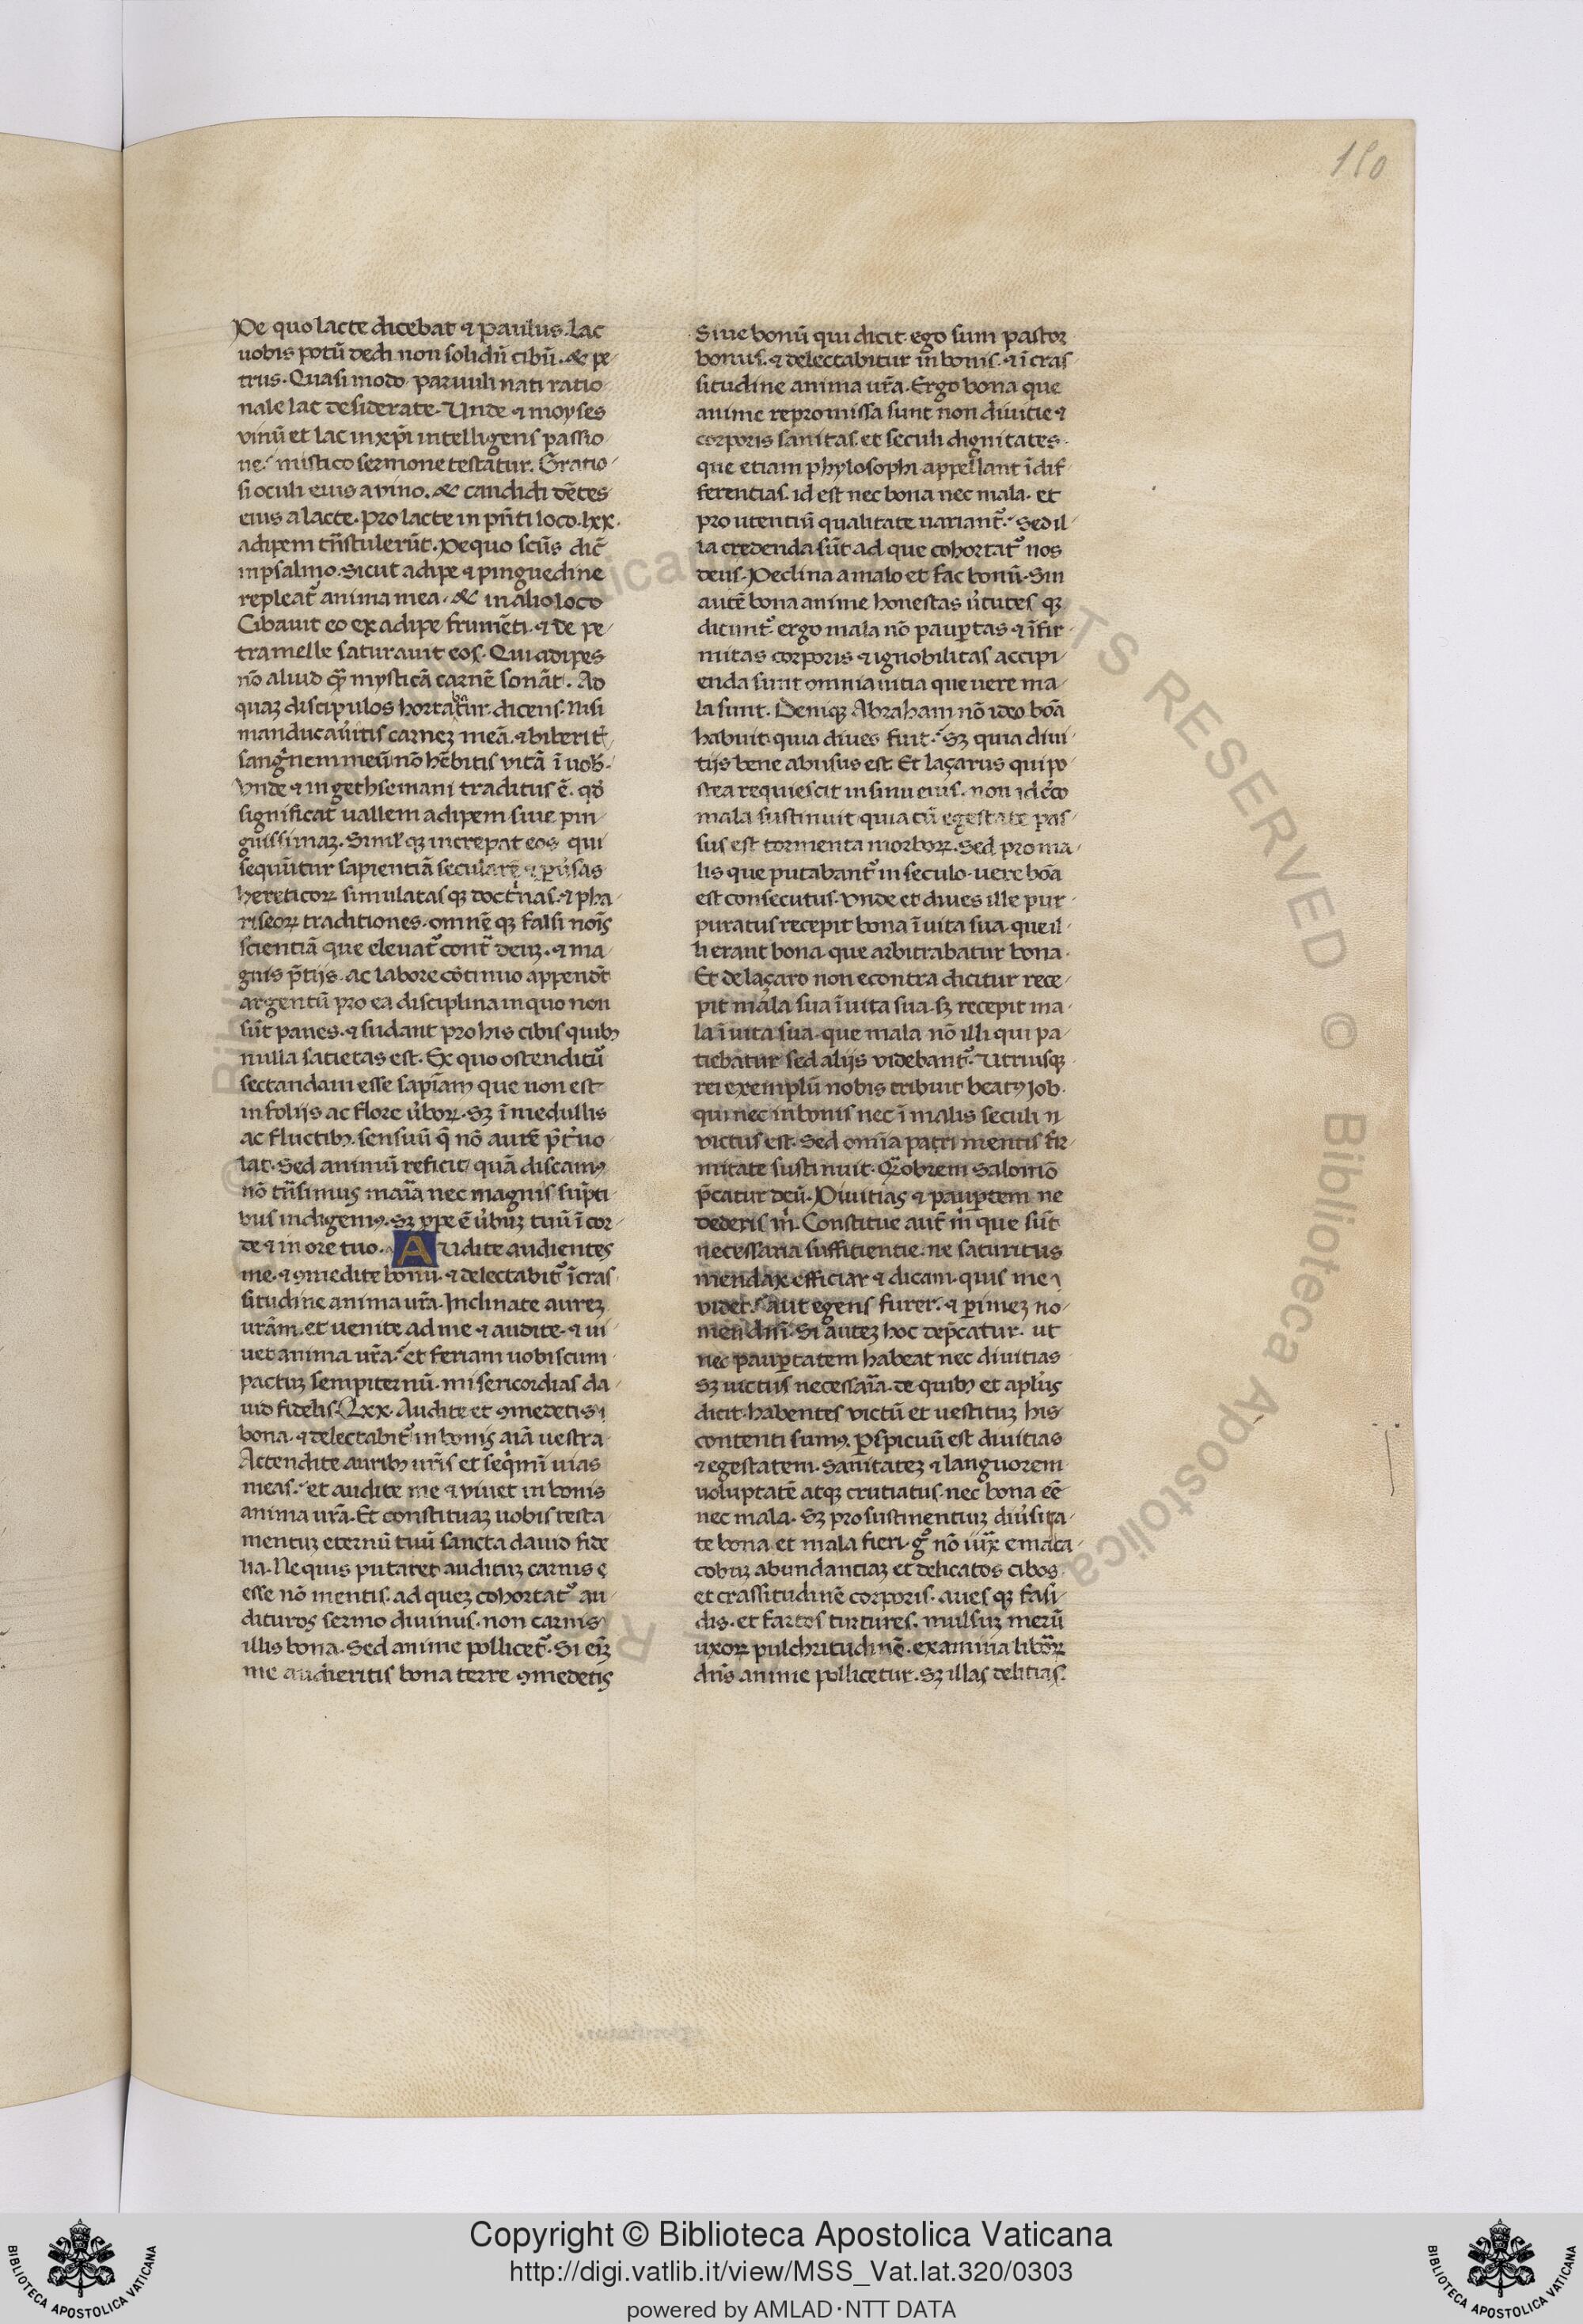 150
De quo lacte dicebat ⁊ paulus. Lac
uobis potū dedi non solidū cibū. & pe
trus. Quasi modo paruuli nati ratio
nale lac desiderate. Unde ⁊ moyses
vinū et lac in xp̄i intelligens passio
ne. mistico sermone testatur. Gratio
si oculi eius a vino. & candidi dētes
eius a lacte. Pro lacte in pn̄ti loco. lxx.
adipem trn̄stulerūt. De quo scūs dic̄
in psalmo. Sicut adipe ⁊ pinguedine
repleat᷑ anima mea. & in alio loco
Cibauit eo ex adipe frumēti. ⁊ de pe
tra melle saturauit eos. Qui adipes
nō aliud qꝫ mysticā carnē sonāt. Ad
quaꝫ discipulos hortatur dicens. Nisi
manducaůitis carneꝫ meā. ⁊ biberit᷑
sanguinem meū nō hēbitis vitā ī uob̄.
Vnde ⁊ in gethsemani traditus ē. qd̄
significat uallem adipem siue pin
guissimaꝫ. Simł qꝫ increpat eos qui
sequūtur sapientiā secularē ⁊ ꝑůsas
hereticoꝝ simulatas qꝫ doctrinas. ⁊ pha
riseoꝝ traditiones. omnē qꝫ falsi nōis
scientiā que eleuat᷑ cont̄ deuꝫ. ⁊ ma
gnis p̄tijs. ac labore cōtinuo appendt̄
argentū pro ea disciplina in quo non
sūt panes. ⁊ sudant pro his cibis quibꝰ
nulla satietas est. Ex quo ostenditu᷑
sectandam esse sapīam que non est
in folijs ac flore ůboꝝ. Sꝫ ī medullis
ac fluctibꝰ. sensuū q̄ nō aurē p̄t̄uo
lat. Sed animū reficit. quā discamꝰ
nō trn̄simus maīa nec magnis sūpti
bus indigemꝰ. Sꝫ ꝓpe ē ůbuꝫ tuū ī cor
de ⁊ in ore tuo. AUdite audientes
me. ⁊ ꝯmedite bonū. ⁊ delectabit᷑ ī cras
situdine anima ur̄a. Inclinate aureꝫ
urām. et uenite ad me ⁊ audite. ⁊ ui
uet anima ur̄a. et feriam uobiscum
pactuꝫ sempiternū. misericordias da
uid fidelis. Lxx. Audite et ꝯmedetis
bona. ⁊ delectabit᷑ in bonis aīa uestra
Attendite auribꝰ ur̄is et seq̇mī uias
meas. et audite me ⁊ viuet in bonis
anima ur̄a. Et constituaꝫ uobis testa
mentuꝫ eternū tuū sancta dauid fide
lia. Ne quis putaret audituꝫ carnis ę
esse nō mentis. ad queꝫ cohortat᷑ au
dituros sermo diuinus. non carnis
illis bona. Sed anime pollicet᷑. Si eīꝫ
me audieritis bona terre ꝯmedetis
Siue bonū qui dicit. ego sum pastor
bonus. ⁊ delectabitur in̄ bonis. ⁊ ī cras
situdine anima ur̄a. Ergo bona que
anime repromissa sunt non diuitie ⁊
corporis sanitas. et seculi dignitates.
que etiam phylosophi appellant īdif
ferentias. id est nec bona nec mala. et
pro utentiū qualitate uariant᷑. Sed il
la credenda sūt ad que cohortat᷑ nos
deus. Declina a malo et fac bonū. Sin
autē bona anime honestas ůtutes qꝫ
dicunt᷑. ergo mala nō pauꝑtas ⁊ īfir
mitas corporis ⁊ ignobilitas accipi
enda sunt omnia uitia que uere ma
la sunt. Deniqꝫ Abraham nō ideo bōa
habuit quia diues fuit. Sꝫ quia diui
tijs bene abusus est. Et laçarus qui po
stea requiescit in sinu eius. non id c̄co
mala sustinuit quia cū egestate pas
sus est tormenta morboꝝ. Sed pro ma
lis que putabant᷑ in seculo. uere bōa
est consecutus. Vnde et diues ille pur
puratus recepit bona ī uita sua. que il
li erant bona. que arbitrabatur bona.
Et de laçaro non econtra dicitur rece
pit mala sua ī uita sua. sꝫ recepit ma
la ī uita sua. que mala nō illi qui pa
tiebatur sed alijs videbant᷑. Utriusqꝫ
rei exemplū nobis tribuit beatꝰ Job.
qui nec in bonis nec ī malis seculi
victus est. Sed omīa pari mentis fir
mitate sustinuit. Qr̄obrem Salomō
p̄catur deū. Diuitias ⁊ pauꝑtem ne
dederis m̄. Constitue aut̄ m̄ que sūt
necessaria suffitientie. ne saturitus
mendax efficiar ⁊ dicam. quis me
videt. aut egens furer. ⁊ ꝑimeꝫ no
men dn̄i. Si auteꝫ hoc dep̄catur. ut
nec pauꝑtatem habeat nec diuitias
sꝫ uictus necessaīa. de quibꝰ et apl̄us
dicit. habentes victū et uestituꝫ his
contenti sumꝰ. ꝑspicuū est diuitias
⁊ egestatem. sanitateꝫ ⁊ languorem
uoluptatē atqꝫ crutiatus. nec bona eē
nec mala. Sꝫ pro sustinentiuꝫ diůsita
te bona et mala fieri. g᷑ nō iux̄ emata
cobuꝫ abundantiaꝫ et delicatos cibos
et crassitudinē corporis. aues qꝫ fasi
dis. et fartos turtures. mulsuꝫ merū
uxoꝝ pulchritudinē. examina liboꝝ
dn̄s anime pollicetur. Sꝫ illas delitias.
Copyright © Biblioteca Apostolica Vaticana
http://digi.vatlib.it/view/MSS_Vat.lat.320/0303
powered by AMLAD·NTT DATA
BIBLIOTECA APOSTOLICA VATICANA
BIBLIOTECA APOSTOLICA VATICANA